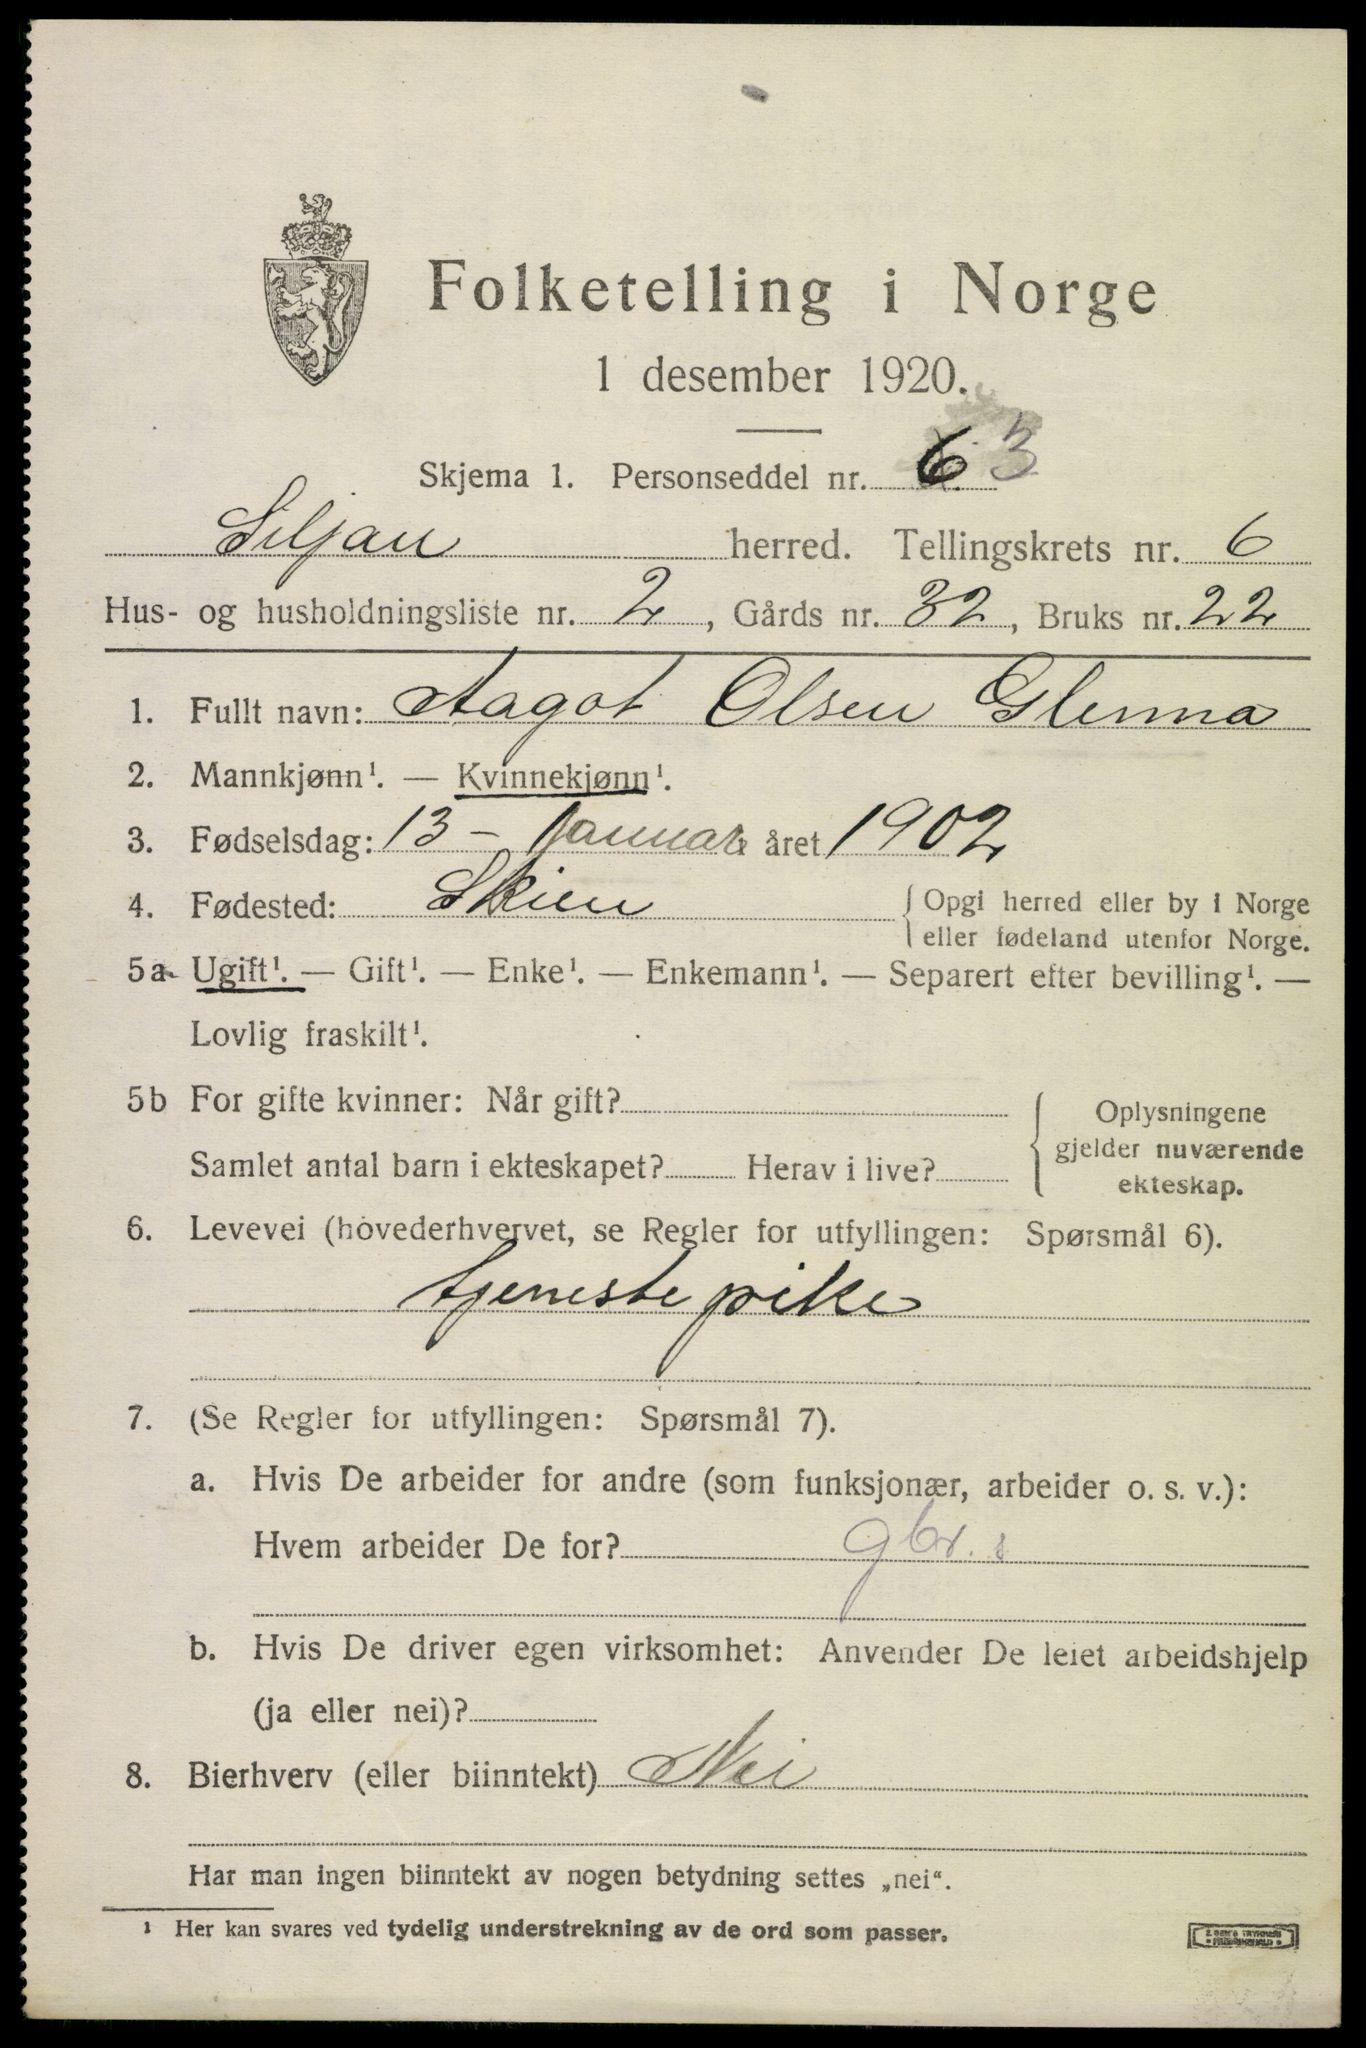 Folketelling i Norge
1 desember 1920.
Skjema 1. Personseddel nr. 63
Siljan herred. Tellingskrets nr. 6
Hus- og husholdningsliste nr. 2, Gårds nr. 32, Bruks nr. 22
1. Fullt navn: Aagot Olsen Glenna
2. Mannkjønn¹. — Kvinnekjønn¹.
3. Fødselsdag: 13 – januar året 1902
4. Fødested: Skien { Opgi herred eller by i Norge
eller fødeland utenfor Norge.
5a Ugift¹. — Gift¹. — Enke¹. — Enkemann¹. — Separert efter bevilling¹. —
Lovlig fraskilt¹.
5b For gifte kvinner: Når gift? { Oplysningene
gjelder nuværende
Samlet antal barn i ekteskapet? Herav i live?
ekteskap.
6. Levevei (hovederhvervet, se Regler for utfyllingen: Spørsmål 6).
tjenestepike
7. (Se Regler for utfyllingen: Spørsmål 7).
a. Hvis De arbeider for andre (som funksjonær, arbeider o. s. v.):
Hvem arbeider De for? gbr. s
b. Hvis De driver egen virksomhet: Anvender De leiet arbeidshjelp
(ja eller nei)?
8. Bierhverv (eller biinntekt) Nei
Har man ingen biinntekt av nogen betydning settes „nei“.
¹ Her kan svares ved tydelig understrekning av de ord som passer.